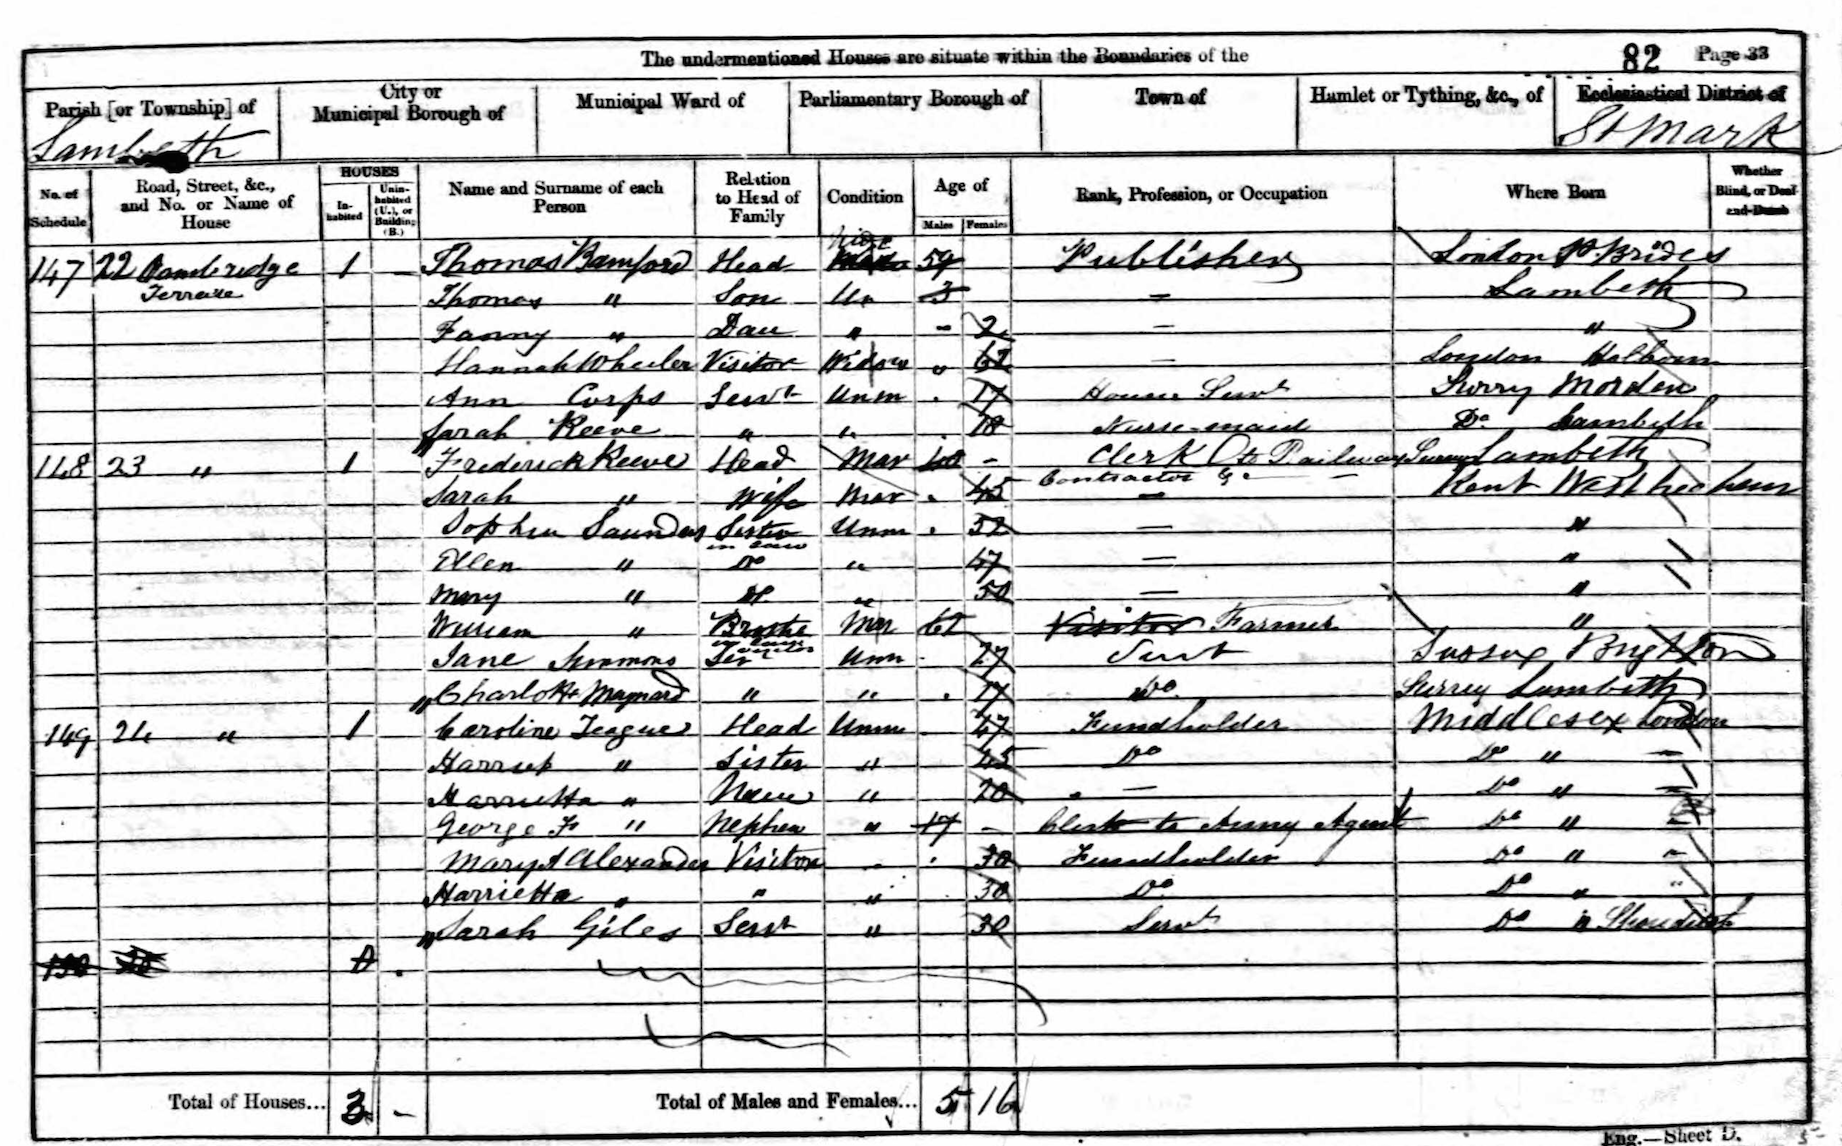 The undermentioned Houses are situate within the Boundaries of the 82 Page 33
Parish [or Township] of City or Municipal Borough of Municipal Ward of Parliamentary Borough of Town of Hamlet or Tything, &c., of Ecclesiastical District of
Lambeth St Mark
No. of Schedule Road, Street, &c., and No. or Name of House HOUSES Inhabited Uninhabited (U.), or Building (B.) Name and Surname of each Person Relation to Head of Family Condition Age of Males Females Rank, Profession, or Occupation Where Born Whether Blind, or Deaf-and-Dumb
147 22 1 – Thomas Bamford Head 59 Publisher London St. Brides
Terrace Thomas " Son Un 3 – Lambeth
Fanny " Dau " – 2 – "
Hannah Wheeler Visitor Widow " 62 – London Holborn
Ann Corps Servt Unm 17 House Servt Surry Morden
Sarah Reeve " " 18 Nurse-maid Do Lambeth
148 23 " 1 Frederick Reeve Head Mar 40 – Clerk to Railway Surrey Lambeth
Contractor &c
Sarah " Wife Mar 45 – Kent
Sophia Saunders Sister in law Unm 52 – "
Ellen " Do " 47 – "
Mary " Do " 50 – "
William " 62 Visitor Farmer "
Jane Simmons Serv Unm 27 Servt Sussex Brighton
Charlotte Maynard " " 17 Do Surrey Lambeth
149 24 " 1 Caroline Teague Head Unm 47 Fundholder Middlesex London
Harriet " Sister " 45 Do Do " –
Harrietta " Niece " 20 – Do " –
George F " Nephew " 17 – Clerk to Army Agent Do " –
Mary A Alexander Visitor 30 Fundholder Do " "
Harrietta " " " 30 Do Do " "
Sarah Giles Servt " 30 Servt Do " Shoreditch
150
Total of Houses... 3 – Total of Males and Females... 5 16
Eng.—Sheet D.